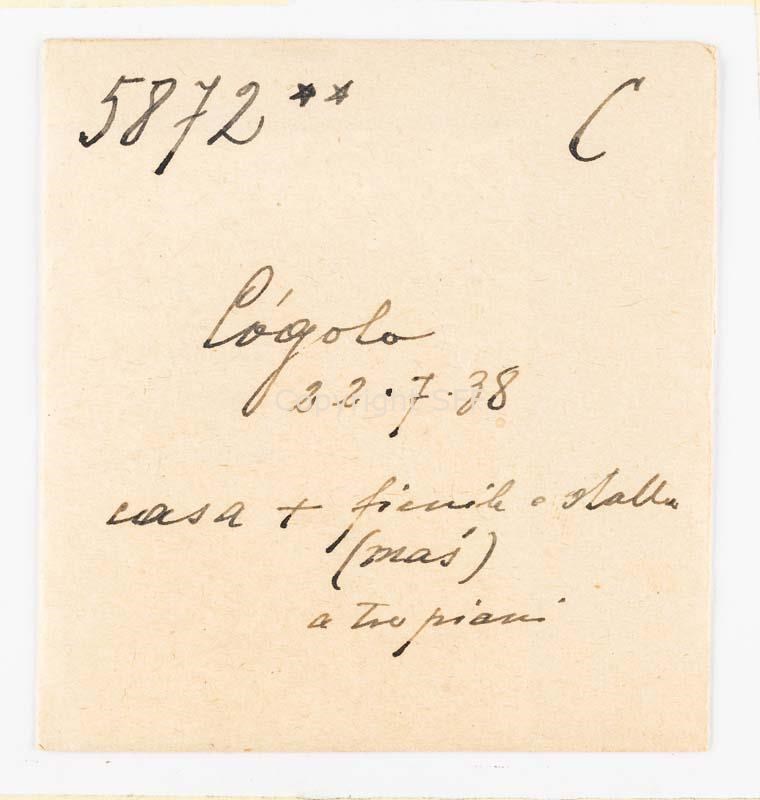 5872 ** C
Cógolo
22.7.38
casa + fienile e stalla
(maś)
a tre piani